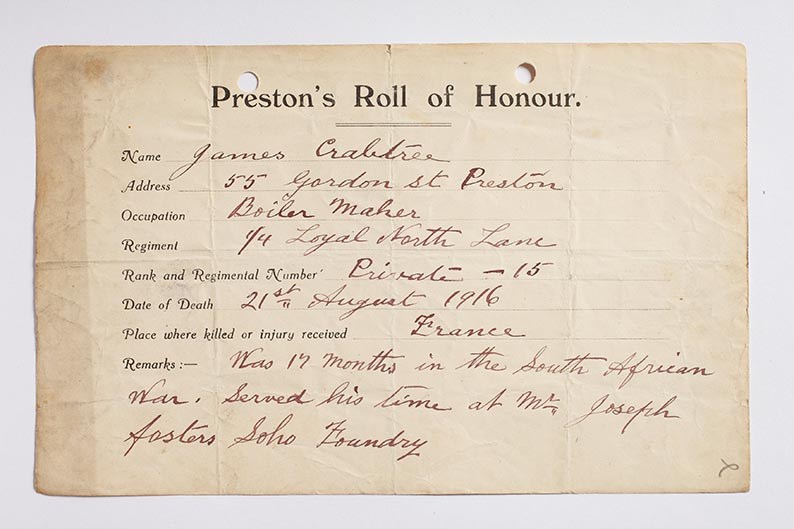 Preston's Roll of Honour.
Name James Crabtree
Address 55 Gordon St Preston
Occupation Boiler Maker
Regiment 1/4 Loyal North Lanc
Rank and Regimental Number Private - 15
Date of Death 21st August 1916
Place where killed or injury received France
Remarks:— Was 17 months in the South African
War. Served his time at Mr Joseph
fosters Soho Foundry